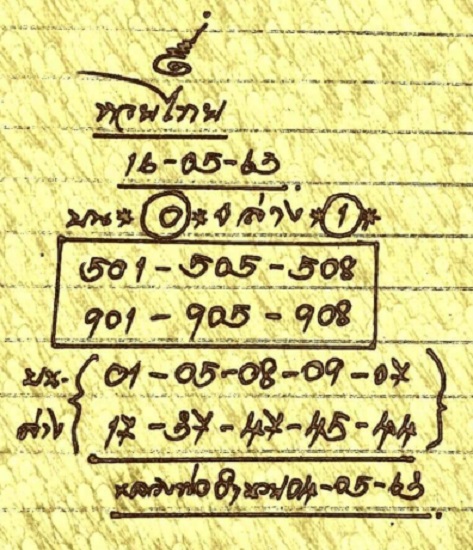 หวยไทย
16-05-63
บน * 0 * ล่าง * 1 *
501 - 505 - 508
901 - 905 - 908
บน - 01 - 05 - 08 - 09 - 07
ล่าง 17 - 37 - 47 - 45 - 44
04-05-63